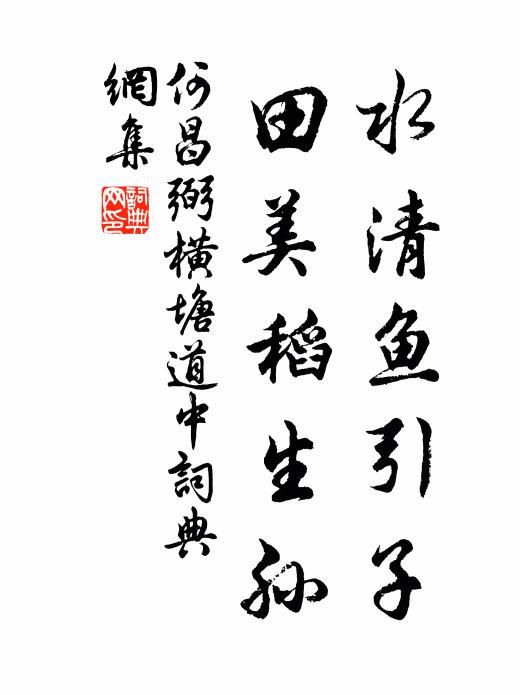 水清鱼引子
田美稻生孙
何昌弼橫塘道中詞典
網集
詞典
网印